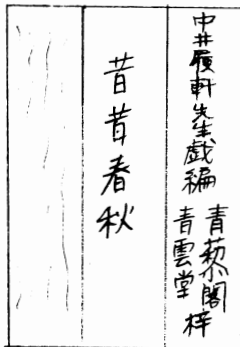 中井履軒先生戯編
青藜閣
青雲堂 梓
昔昔春秋